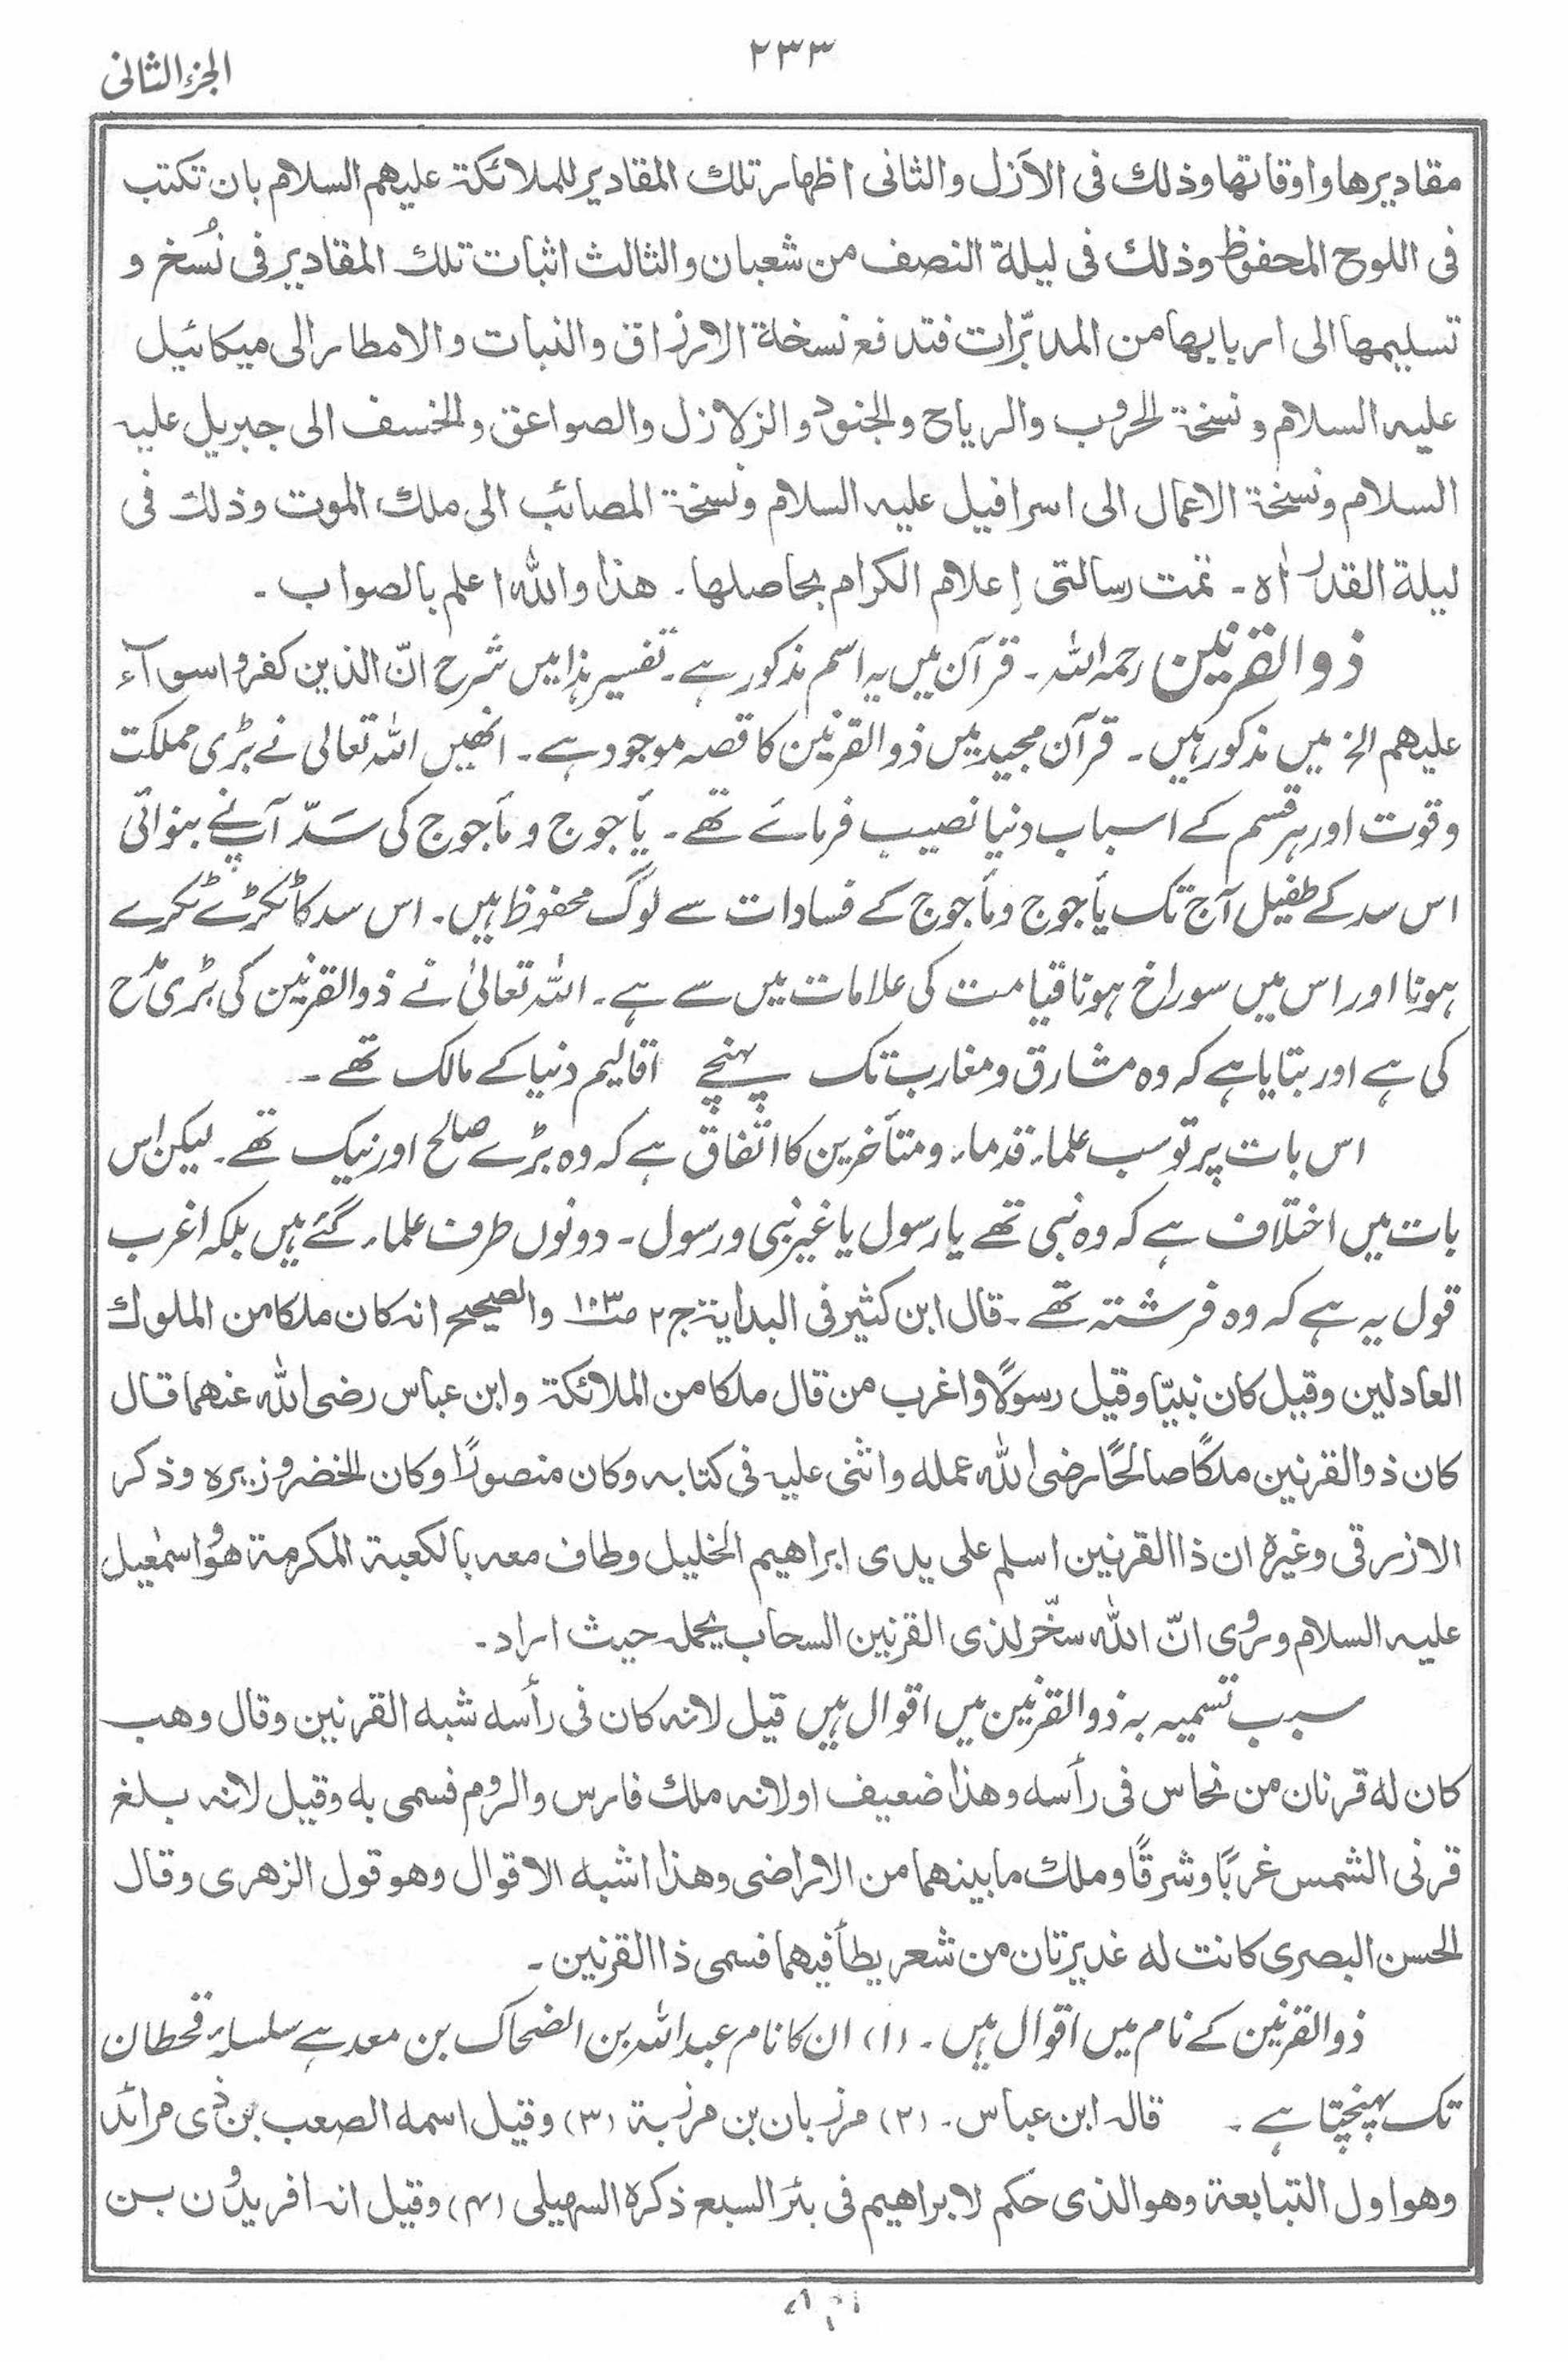 ۲۳۳
الجزء الثانی
مقادیرها واوقاتها وذلك فی الآزل والثانی اظهار تلك المقادیر للملائکة علیهم السلام بان تکتب
فی اللوح المحفوظ وذلك فی لیلة النصف من شعبان والثالث اثبات تلك المقادیر فی نُسخ و
تسلیمها الی اربابها من المدبّرات فتدفع نسخة الارزاق والنبات والامطار الی میکائیل
علیه السلام ونسخة الحروب والریاح والجنود والزلازل والصواعق والخسف الی جبریل علیه
السلام ونسخة الاعمال الی اسرافیل علیه السلام ونسخة المصائب الی ملك الموت وذلك فی
لیلة القدر اه ۔ تمت رسالتی إعلام الکرام بحاصلها ۔ هذا والله اعلم بالصواب ۔
ذو القرنین رحمہ اللہ ۔ قرآن میں یہ اسم مذکور ہے ۔ تفسیر ہذا میں شرح انّ الذین کفروا سوآء
علیهم الخ میں مذکور ہیں ۔ قرآن مجید میں ذو القرنین کا قصہ موجود ہے ۔ انھیں اللہ تعالی نے بڑی مملکت
وقوت اور ہر قسم کے اسباب دنیا نصیب فرمائے تھے ۔ یأجوج و مأجوج کی سَدّ آپنے بنوائی
اس سد کے طفیل آج تک یأجوج ومأجوج کے فسادات سے لوگ محفوظ ہیں ۔ اس سد کا ٹکڑے ٹکرے
ہونا اور اس میں سوراخ ہونا قیامت کی علامات میں سے ہے ۔ اللہ تعالیٰ نے ذو القرنین کی بڑی مدح
کی ہے اور بتایا ہے کہ وہ مشارق ومغارب تک پہنچے اقالیم دنیا کے مالک تھے ۔
اس بات پر تو سب علماء قدماء ومتأخرین کا اتفاق ہے کہ وہ بڑے صالح اور نیک تھے ۔ لیکن اس
بات میں اختلاف ہے کہ وہ نبی تھے یا رسول یا غیر نبی ورسول ۔ دونوں طرف علماء گئے ہیں بلکہ اغرب
قول یہ ہے کہ وہ فرشتہ تھے ۔ قال ابن کثیر فی البدایة ج۲ ص۱۰۳ والصحیح انه کان ملکا من الملوك
العادلین وقیل کان نبیّا وقیل رسولًا واغرب من قال ملکا من الملائکة وابن عباس رضی الله عنهما قال
کان ذو القرنین ملکًا صالحًا رضی الله عمله واثنی علیه فی کتابه وکان منصورًا وکان الخضر وزیره وذکر
الازرقی وغیره ان ذا القرنین اسلم علی یدی ابراهیم الخلیل وطاف معه بالکعبة المکرمة هو واسمٰعیل
علیه السلام وروی انّ الله سخّر لذی القرنین السحاب یحمله حیث اراد ۔
سبب تسمیہ بہ ذو القرنین میں اقوال ہیں قیل لانه کان فی رأسه شبه القرنین وقال وهب
کان له قرنان من نحاس فی رأسه وهذا ضعیف او لانه ملك فارس والروم فسمی به وقیل لانه بلغ
قرنی الشمس غربًا وشرقًا وملك ما بینهما من الاراضی وهذا اشبه الاقوال وهو قول الزهری وقال
الحسن البصری کانت له غدیرتان من شعر یطأ فیهما فسمی ذا القرنین ۔
ذو القرنین کے نام میں اقوال ہیں ۔ (۱) ان کا نام عبد اللہ بن الضحاک بن معد ہے سلسلہ قحطان
تک پہنچتا ہے ۔ قاله ابن عباس ۔ (۲) مرزبان بن مرزبة (۳) وقیل اسمه الصعب بن ذی مرائد
وهو اول التبابعة وهو الذی حَکم لابراهیم فی بئر السبع ذکره السهیلی (۴) وقیل انه افریدون بن